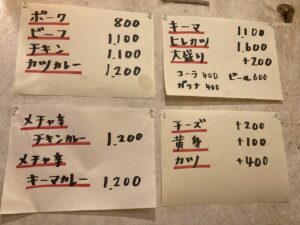 ポーク 800
ビーフ 1,100
チキン 1,100
カツカレー 1,200
キーマ 1,100
ヒレカツ 1,600
大盛り +200
コーラ 400 ビール 600
ガラナ 400
メチャ辛
チキンカレー 1,200
メチャ辛
キーマカレー 1,200
チーズ +200
黄身 +100
カツ +400